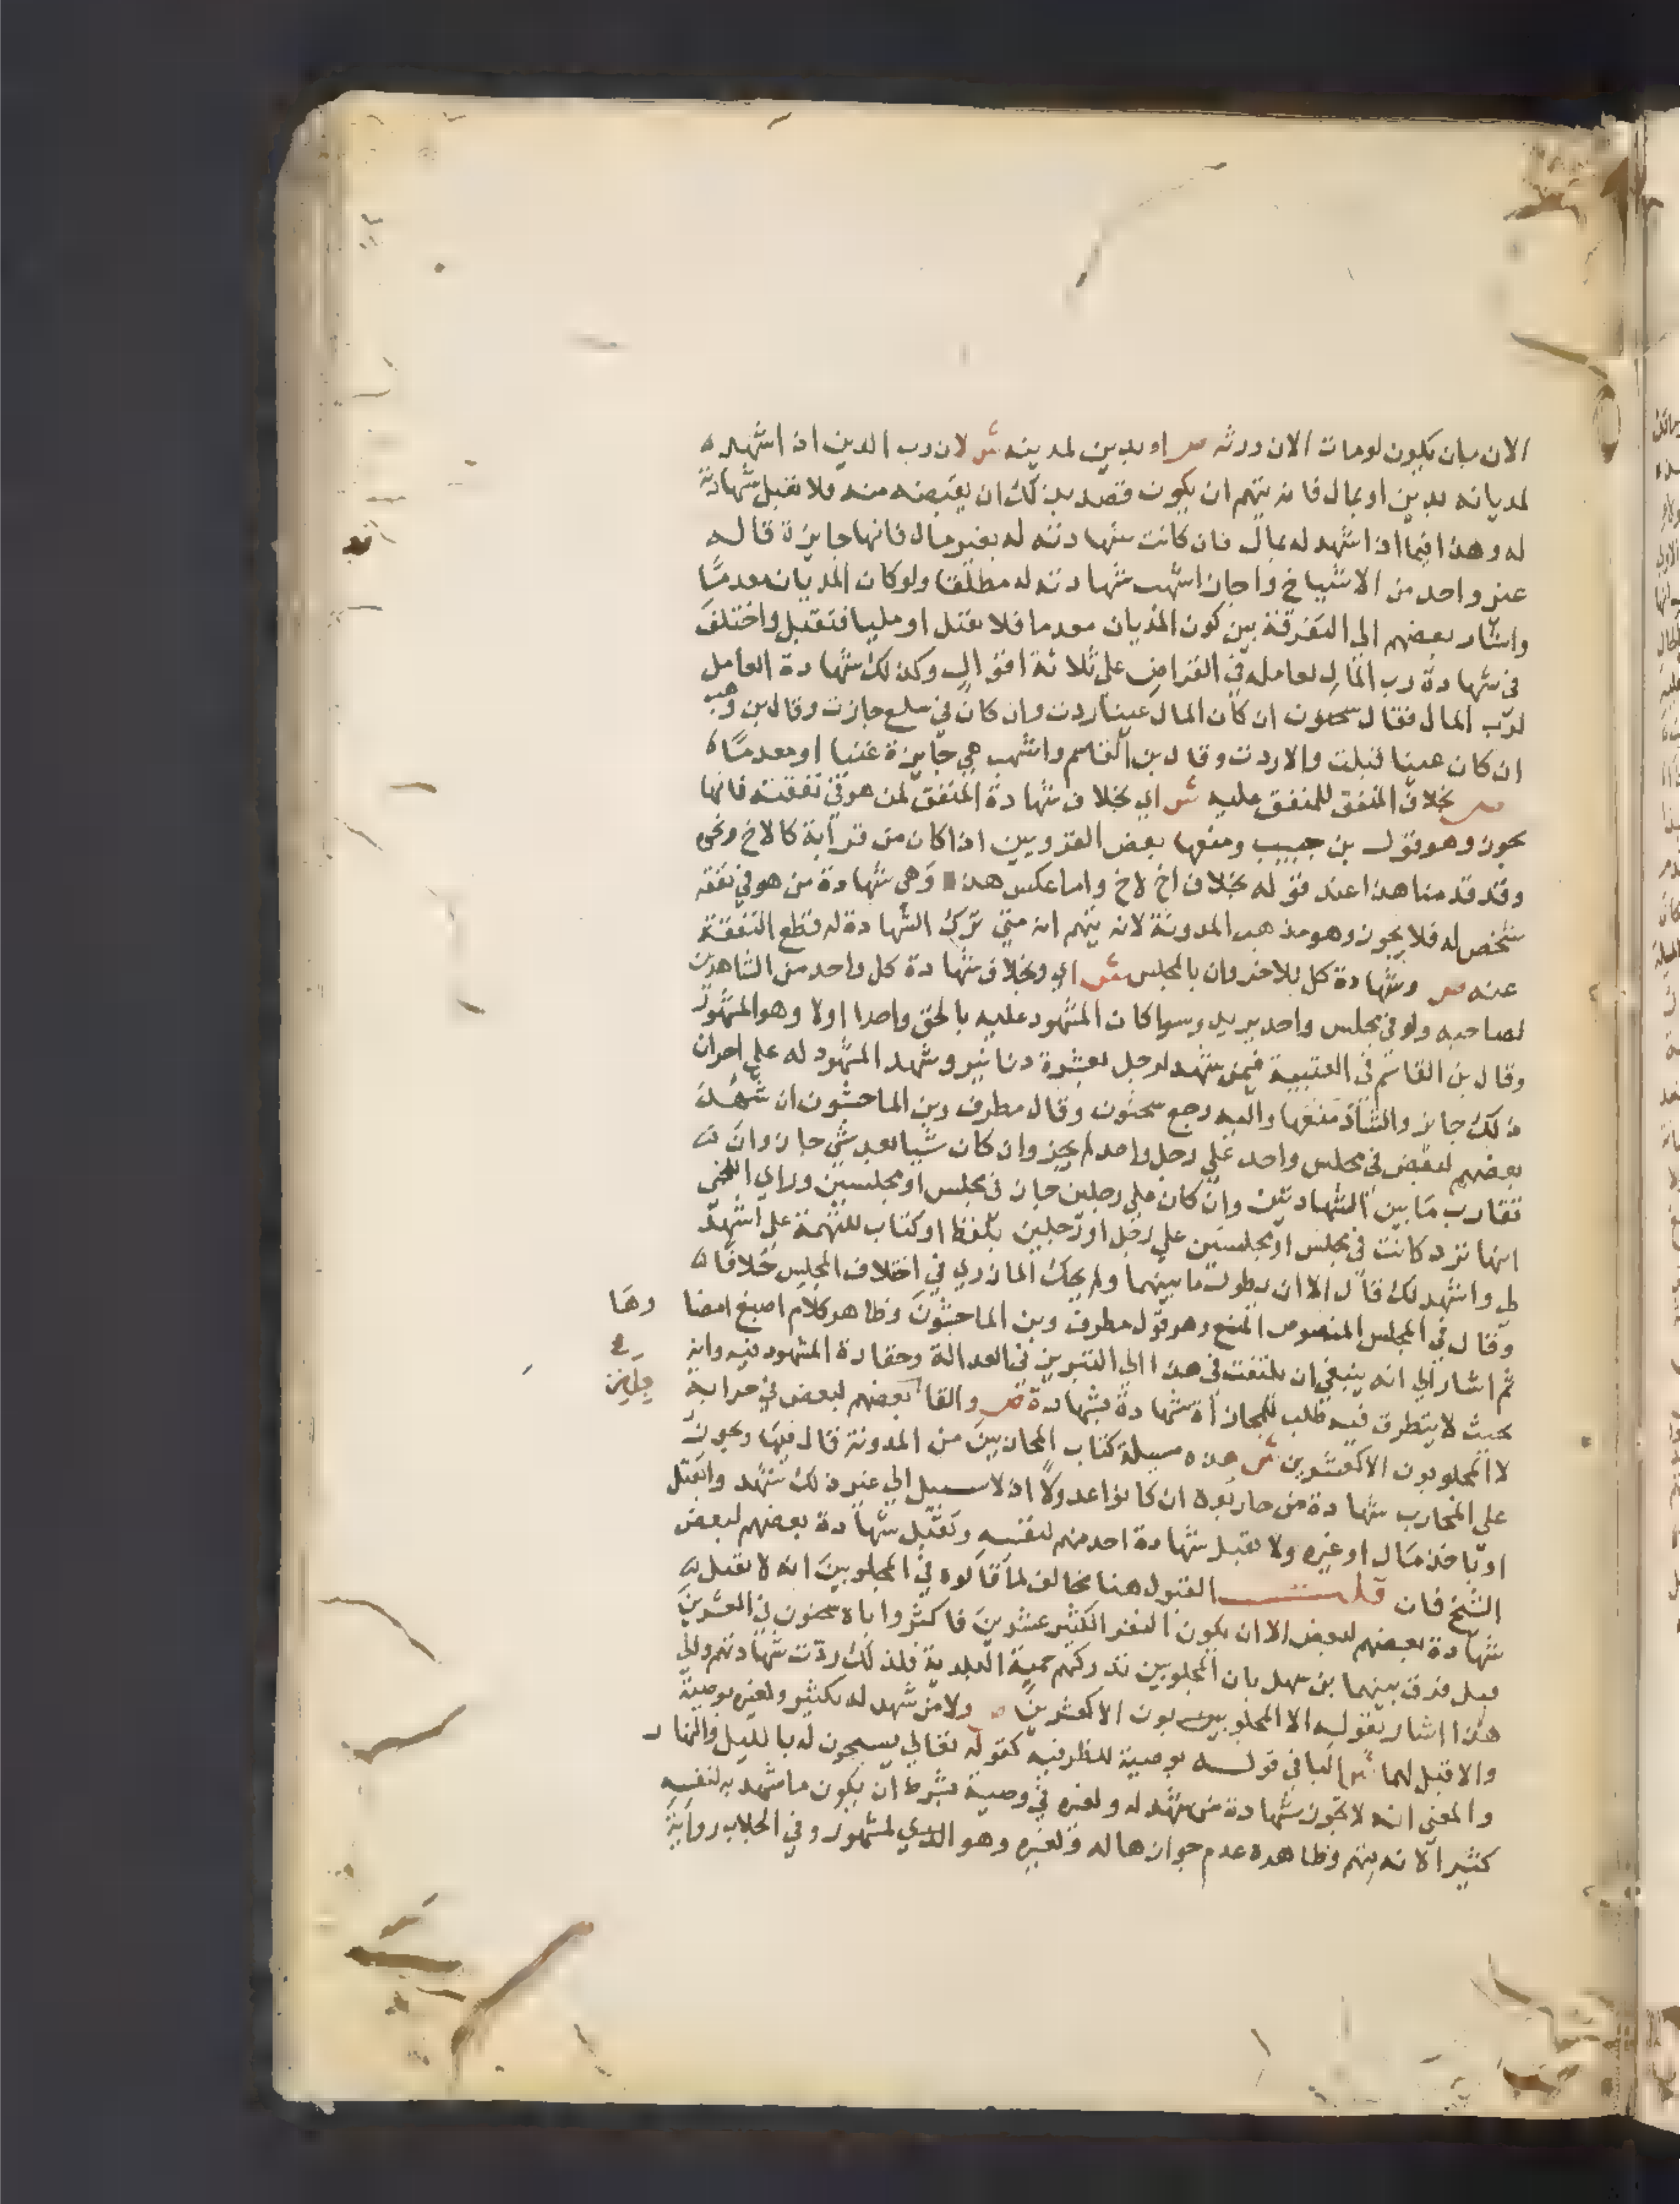 الان بان يكون لو مات الان ورثه ص او بدين لمدينه ش لان رب الدين اذا شهد
لمديانه بدين او بمال فانه يتهم ان يكون قصد بذلك ان يقبضه منه فلا تقبل شهادته
له وهذا فيما اذا شهد له بمال فان كانت شهادته له بغير مال فانها جايزة قاله
غير واحد من الاشياخ واجاز اشهب شهادته له مطلقا ولو كان المديان معدما
واشار بعضهم الي التفرقة بين كون المديان معدما فلا تقبل او مليا فتقبل واختلف
في شهادة رب المال لعامله في القراض علي ثلاثة اقوال وكذلك شهادة العامل
لرب المال فقال سحنون ان كان المال عينا ردت وان كان في سلع جازت وقال بن وهب
ان كان عينا قبلت والا ردت وقال بن القاسم واشهب هي جايزة غنيا او معدما
ص بخلاف المنفق للمنفق عليه ش اي بخلاف شهادة المنفق لمن هو في نفقته فانها
تجوز وهو قول بن حبيب ومنعها بعض القرويين اذا كان من قرابة كالاخ ونحوه
وقد قدمنا هذا عند قوله بخلاف اخ لاخ واما عكس هذا وهي شهادة من هو في نفقة
شخص له فلا يجوز وهو مذهب المدونة لانه يتهم انه متي ترك الشهادة له قطع النفقة
عنه ص وشهادة كل للاخر وان بالمجلس ش اي وبخلاف شهادة كل واحد من الشاهدين
لصاحبه ولو في مجلس واحد يريد وسوا كان المشهود عليه بالحق واحدا اولا وهو المشهور
وقال بن القاسم في العتبية فيمن شهد لرجل بعشرة دنانير وشهد المشهود له علي اخر ان
ذلك جايز والشاذ منعها واليه رجع سحنون وقال مطرف وبن الماجشون ان شهد
بعضهم لبعض في مجلس واحد علي رجل واحد لم يجز وان كان شيا بعد شي جاز وان
تقارب ما بين الشهادتين وان كان علي رجلين جاز في مجلس او مجلسين وراي اللخمي
انها ترد كانت في مجلس او مجلسين علي رجل او رجلين بلفظ او كتاب للتهمة علي اشهد
لي واشهد لك قال الا ان يطول ما بينهما ولم يحك المازري في اختلاف المجلس خلافا
وقال في المجلس المنصوص المنع وهو قول مطرف وبن الماجشون وظاهر كلام اصبغ امضا وها
ثم اشار الي انه ينبغي ان يلتفت في هذا الي التبريز في العدالة وحقارة المشهود فيه وانه
بحيث لا يتطرق فيه طلب للمجازاة شهادة بشهادة ص والقافلة بعضهم لبعض في حرابة
لا المجلوبون الا كعشرين ش هذه مسيلة كتاب المحاربين من المدونة قال فيها وتجوز
علي المحارب شهادة من حاربوه ان كانوا عدولا اذ لا سبيل الي غير ذلك شهدوا بقتل
او باخذ مال او غيره ولا تقبل شهادة احد منهم لنفسه وتقبل شهادة بعضهم لبعض
الشيخ فان قلت القبول هنا مخالف لما قالوه في المجلوبين انه لا تقبل
شهادة بعضهم لبعض الا ان يكون النفر الكثير عشرين فاكثر واباه سحنون في العشرين
قيل فرق بينهما بن سهل بان المجلوبين تدركهم حمية البلدية فلذلك ردت شهادتهم والي
هذا اشار بقوله الا المجلوبين يون الا كعشرين ص ولا من شهد له بكثير ولغيره بوصية
والا قبل لهما ش البا في قوله بوصية للظرفية كقوله تعالي يسبحون له بالليل والنهار
والمعني انه لا تجوز شهادة من شهد له ولغيره في وصية بشرط ان يكون ما شهد به لنفسه
كثيرا لانه يتهم وظاهره عدم جوازها له ولغيره وهو الذي لمشهور وفي الجلاب رواية